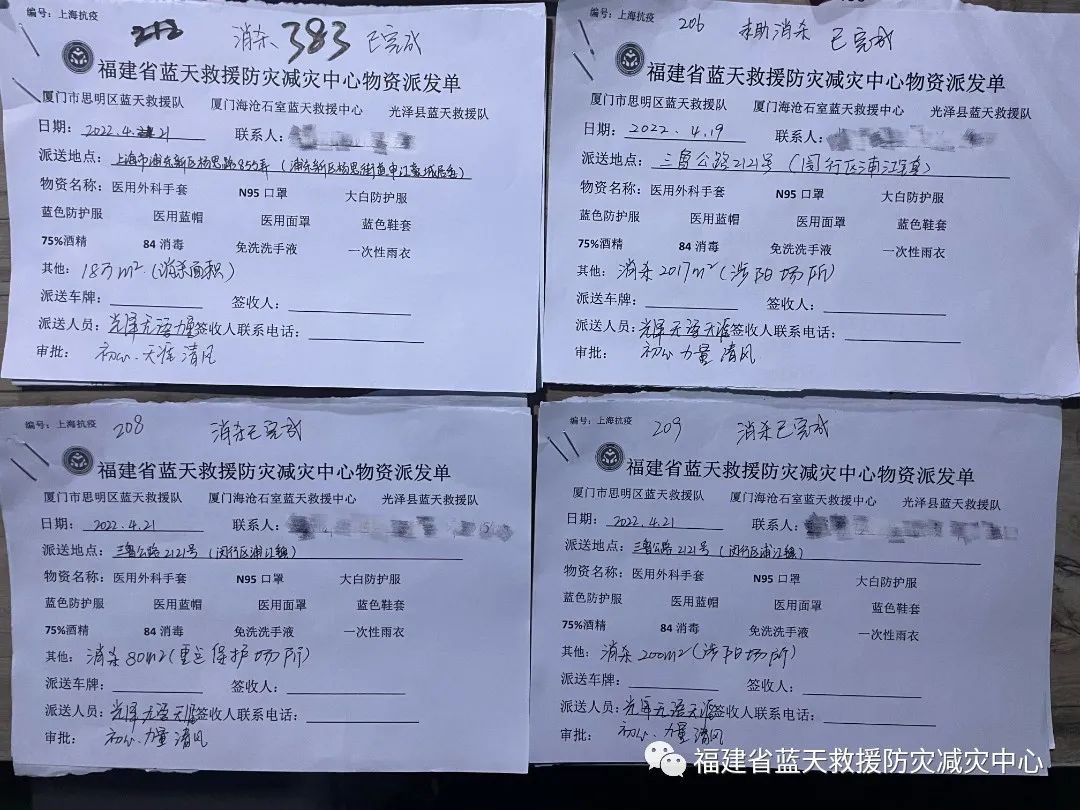 编号：上海抗疫
消杀 383 已完成
福建省蓝天救援防灾减灾中心物资派发单
厦门市思明区蓝天救援队 厦门海沧石室蓝天救援中心 光泽县蓝天救援队
日期：2022.4.21 联系人：
派送地点：上海市浦东新区杨思路855弄（浦东新区杨思街道申江豪城居委）
物资名称：医用外科手套 N95 口罩 大白防护服
蓝色防护服 医用蓝帽 医用面罩 蓝色鞋套
75%酒精 84 消毒 免洗洗手液 一次性雨衣
其他：18万m²（消杀面积）
派送车牌： 签收人：
派送人员：光泽无语力量 签收人联系电话：
审批：初心、天涯 清风
编号：上海抗疫 206 消杀 已完成
福建省蓝天救援防灾减灾中心物资派发单
厦门市思明区蓝天救援队 厦门海沧石室蓝天救援中心 光泽县蓝天救援队
日期：2022.4.19 联系人：
派送地点：三鲁公路2121号（闵行区浦江镇）
物资名称：医用外科手套 N95 口罩 大白防护服
蓝色防护服 医用蓝帽 医用面罩 蓝色鞋套
75%酒精 84 消毒 免洗洗手液 一次性雨衣
其他：消杀2017m²（涉阳场所）
派送车牌： 签收人：
派送人员：光泽无语天涯 签收人联系电话：
审批：初心 力量 清风
编号：上海抗疫 208 消杀已完成
福建省蓝天救援防灾减灾中心物资派发单
厦门市思明区蓝天救援队 厦门海沧石室蓝天救援中心 光泽县蓝天救援队
日期：2022.4.21 联系人：
派送地点：三鲁公路2121号（闵行区浦江镇）
物资名称：医用外科手套 N95 口罩 大白防护服
蓝色防护服 医用蓝帽 医用面罩 蓝色鞋套
75%酒精 84 消毒 免洗洗手液 一次性雨衣
其他：消杀80m²（重点保护场所）
派送车牌： 签收人：
派送人员：光泽无语天涯 签收人联系电话：
审批：初心、力量 清风
编号：上海抗疫 209 消杀已完成
福建省蓝天救援防灾减灾中心物资派发单
厦门市思明区蓝天救援队 厦门海沧石室蓝天救援中心 光泽县蓝天救援队
日期：2022.4.21 联系人：
派送地点：三鲁公路2121号（闵行区浦江镇）
物资名称：医用外科手套 N95 口罩 大白防护服
蓝色防护服 医用蓝帽 医用面罩 蓝色鞋套
75%酒精 84 消毒 免洗洗手液 一次性雨衣
其他：消杀200m²（涉阳场所）
派送车牌： 签收人：
派送人员：光泽无语天涯 签收人联系电话：
审批：初心、力量 清风
福建省蓝天救援防灾减灾中心